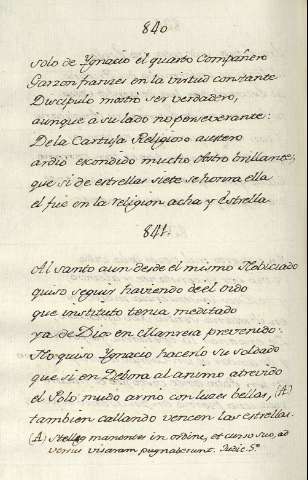 840
solo de Ygnacio el quarto Compañero
Garzon franzes en la virtud constante
Discipulo mostró ser verdadero,
aunque à su lado no perseverante:
De la Cartuja Religioso austero
ardió escondido mucho Astro brillante,
que si de estrellas siete se honrra ella
el fue en la religion acha y Estrella
841.
Al santo aun desde el mismo Noviciado
quiso seguir haviendo de el oido
que instituto tenia meditado
ya de Dios en Manresa prevenido:
No quiso Ygnacio hacerlo su soldado
que si en Debora al animo atrevido
el Polo mudo armò con luzes bellas, (A)
tambien callando vencen las estrellas.
(A) Stellæ manentes in ordine, et cursu suo, ad
versus Sisaram pugnaberunt. Judic. 5º